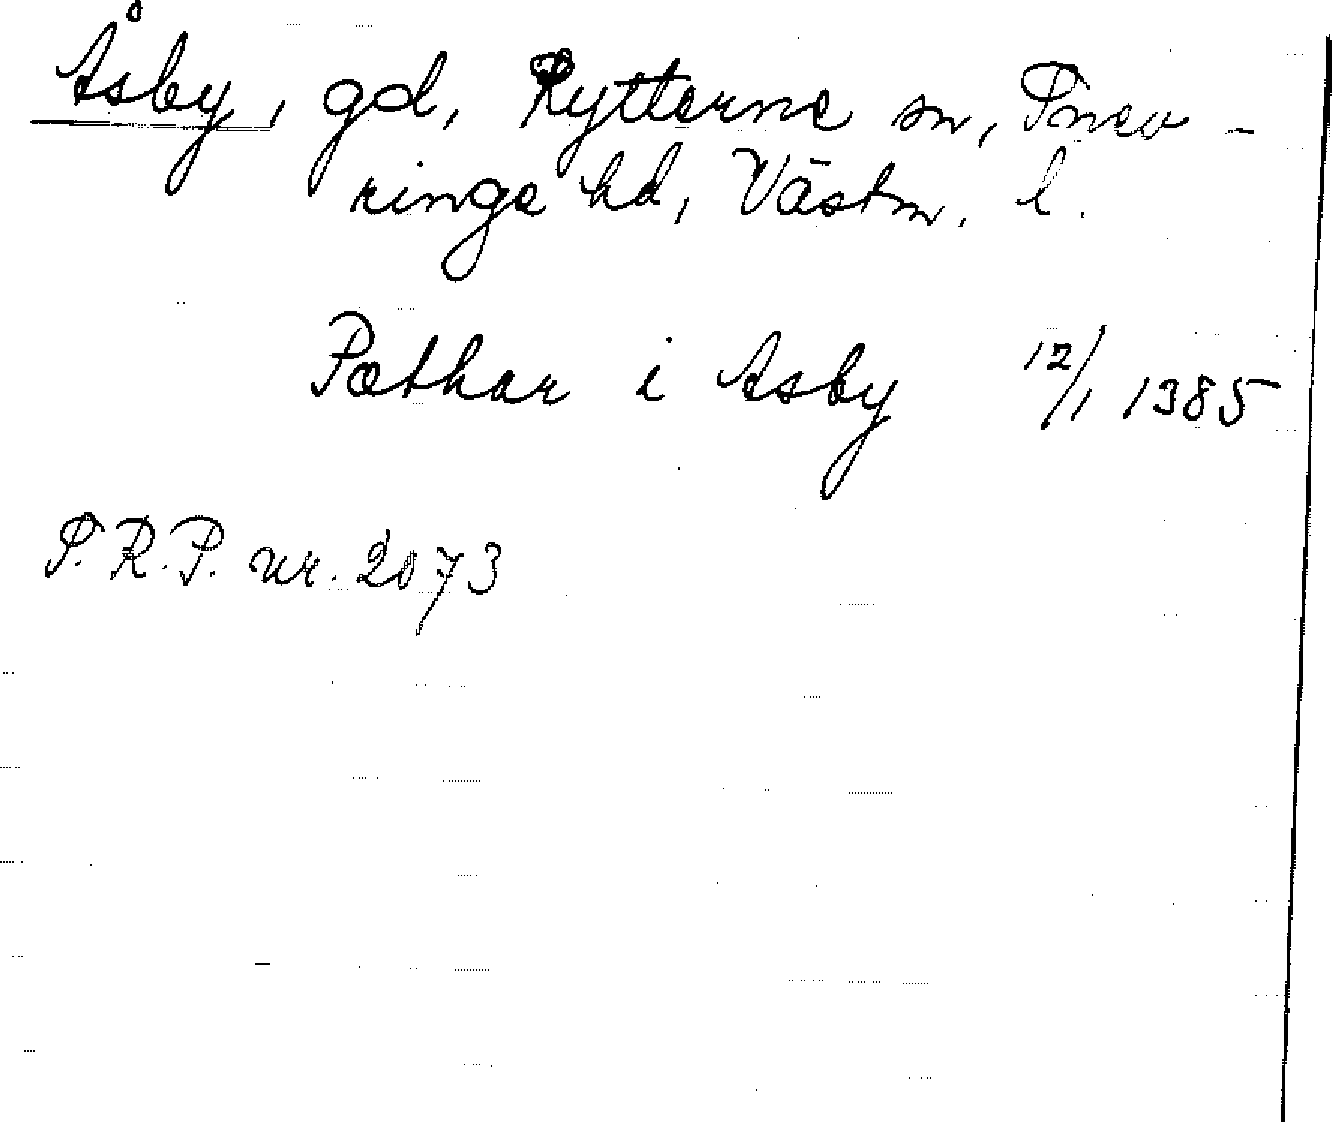 Åsby, gd, Rytterne sn, Snev-
ringe hd, Västm. l.
Pæthar i Asby 12/1 1385
S.R.P. nr. 2073